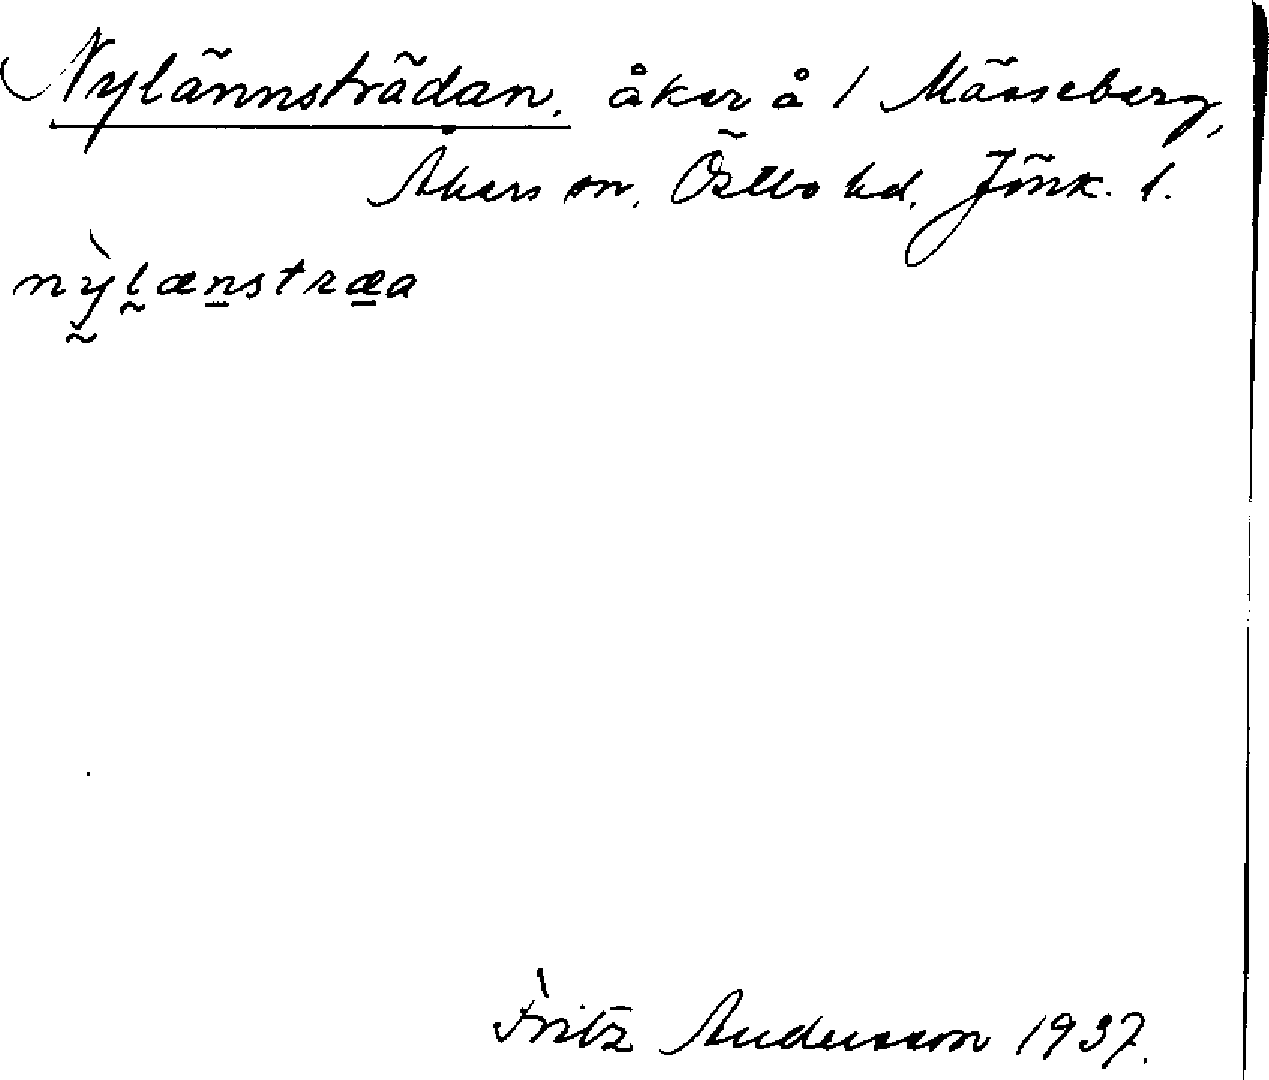 Nylännsträdan, åker å 1 Mässeberg,
Åkers sn, Östbo hd, Jönk. l.
nỳlænstræa
Fritz Andersson 1937.